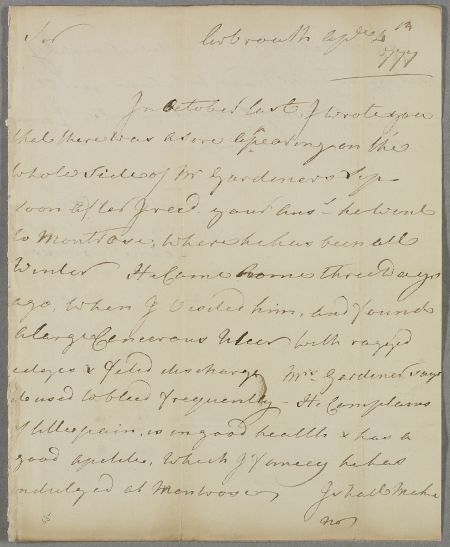 Sir Arbroath Apr 13
1777
In October last, I wrote you
that there was a sore apearing on the
whole side of Mr Gardiners Lip
soon after I recd. your Ansr. he went
to Montrose, where he has been all
Winter He Came home three days
ago, when I visited him, and found
a large Cancerous Ulcer with ragged
edges & fetid discharge Mrs Gardiner says
it used to bleed frequently – He Complains
of little pain, is in good health & has a
good apetite, which I fancey he has
indulged at Montrose, I shall Make
no